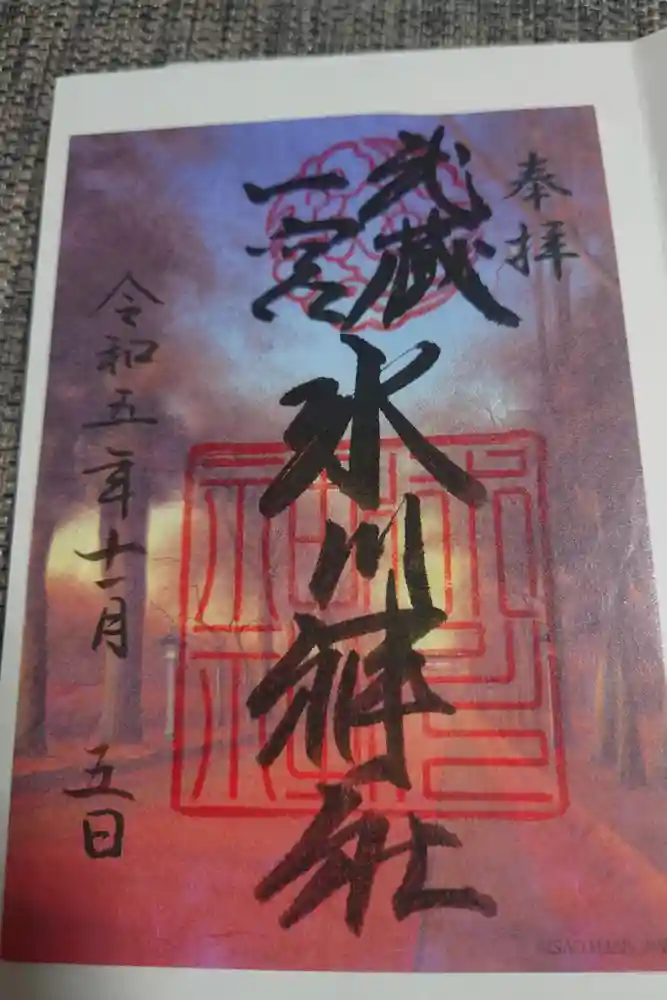 奉拝
武蔵
一宮
氷川神社
令和五年十一月五日